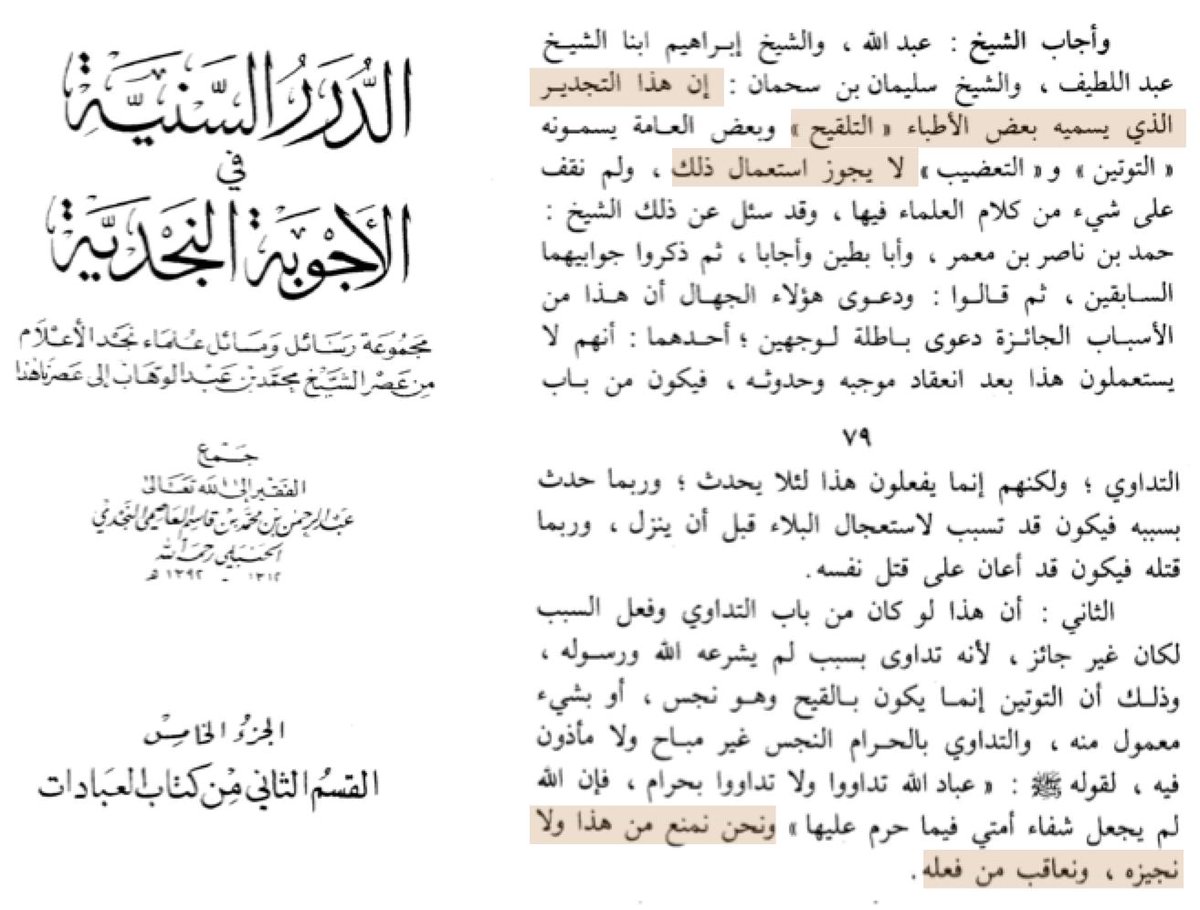 الدُّرَرُ السَّنِيَّة
في
الأَجْوِبَةِ النَّجْدِيَّة
مجموعة رسائل ومسائل علماء نجد الأعلام
من عصر الشيخ محمد بن عبد الوهاب إلى عصرنا هذا
جمع
الفقير إلى الله تعالى
عبد الرحمن بن محمد بن قاسم العاصمي النجدي
الحنبلي رحمه الله
١٣١٢ - ١٣٩٢ هـ
الجزء الخامس
القسم الثاني من كتاب العبادات
وأجاب الشيخ : عبد الله ، والشيخ إبراهيم ابنا الشيخ
عبد اللطيف ، والشيخ سليمان بن سحمان : إن هذا التجدير
الذي يسميه بعض الأطباء « التلقيح » وبعض العامة يسمونه
« التوتين » و « التعضيب » لا يجوز استعمال ذلك ، ولم نقف
على شيء من كلام العلماء فيها ، وقد سئل عن ذلك الشيخ :
حمد بن ناصر بن معمر ، وأبا بطين وأجابا ، ثم ذكروا جوابيهما
السابقين ، ثم قالوا : ودعوى هؤلاء الجهال أن هذا من
الأسباب الجائزة دعوى باطلة لوجهين ؛ أحدهما : أنهم لا
يستعملون هذا بعد انعقاد موجبه وحدوثه ، فيكون من باب
٧٩
التداوي ؛ ولكنهم إنما يفعلون هذا لئلا يحدث ؛ وربما حدث
بسببه فيكون قد تسبب لاستعجال البلاء قبل أن ينزل ، وربما
قتله فيكون قد أعان على قتل نفسه .
الثاني : أن هذا لو كان من باب التداوي وفعل السبب
لكان غير جائز ، لأنه تداوى بسبب لم يشرعه الله ورسوله ،
وذلك أن التوتين إنما يكون بالقيح وهو نجس ، أو بشيء
معمول منه ، والتداوي بالحرام النجس غير مباح ولا مأذون
فيه ، لقوله ﷺ : « عباد الله تداووا ولا تداووا بحرام ، فإن الله
لم يجعل شفاء أمتي فيما حرم عليها » ونحن نمنع من هذا ولا
نجيزه ، ونعاقب من فعله .